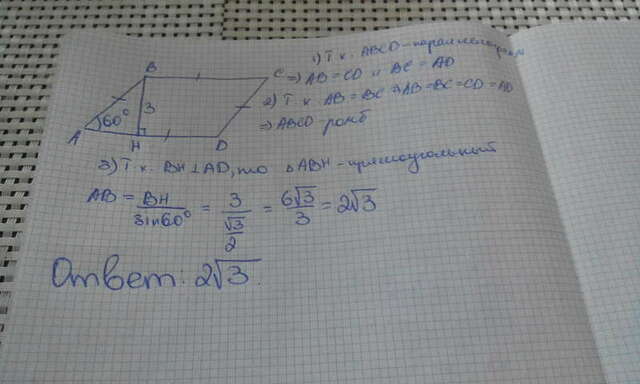 B
C
A
60°
3
H
D
1) Т.к. ABCD - параллелограм
=> AB = CD и BC = AD
2) Т.к AB = BC => AB = BC = CD = AD
=> ABCD - ромб
3) Т.к. BH ⊥ AD, то △ ABH - прямоугольный
AB = BH / sin60° = 3 / (√3 / 2) = 6√3 / 3 = 2√3
Ответ: 2√3.